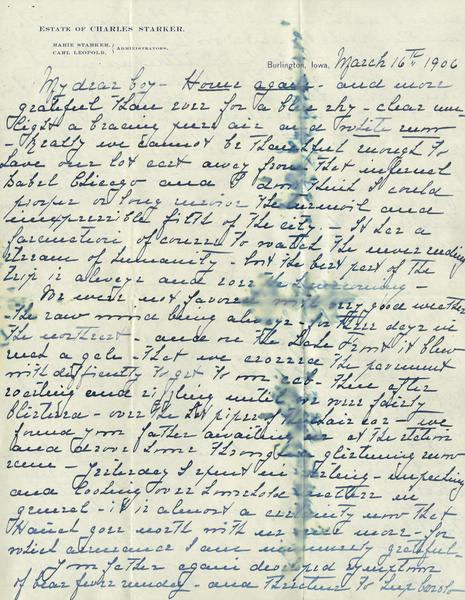 ESTATE OF CHARLES STARKER.
MARIE STARKER,
CARL LEOPOLD,
ADMINISTRATORS.
Burlington, Iowa, March 16th 1906
My dear boy - Home again - and more
grateful than ever for a blue sky - clear sun-
light a bracing pure air and white snow
- Really we cannot be thankful enough to
have our lot cast away from that infernal
babel Chicago and I don't think I could
prosper or long survive the turmoil and
inexpressible filth of the city. - It has a
fascination of course to watch the never ending
stream of humanity - but the best part of the
trip is always and ever the homecoming -
We were not favored with very good weather
- the raw wind being always - for three days in
the northeast - and on the Lake Front it blew
such a gale that we crossed the pavement
with difficulty to get to our cab - then after
roasting and sizzling until we were fairly
blistered - over the hot pipes of the chair car - we
found your father awaiting us at the station
and drove home through glistening snow
- Yesterday I spent in - inspecting
and looking over household matters in
general - it is almost a certainty now that
goes north with us once more - for
which assurance I am sincerely grateful -
Your father again developed symptoms
of bear fever Sunday - and threatens to